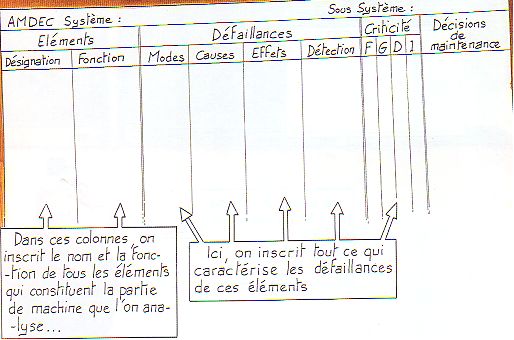 AMDEC Système :
Sous Système :
Eléments
Défaillances
Criticité
Décisions
de
maintenance
Désignation Fonction Modes Causes Effets Détection F G D I
Dans ces colonnes, on
inscrit le nom et la fonc-
-tion de tous les éléments
qui constituent la partie
de machine que l'on ana-
-lyse...
Ici, on inscrit tout ce qui
caractérise les défaillances
de ces éléments